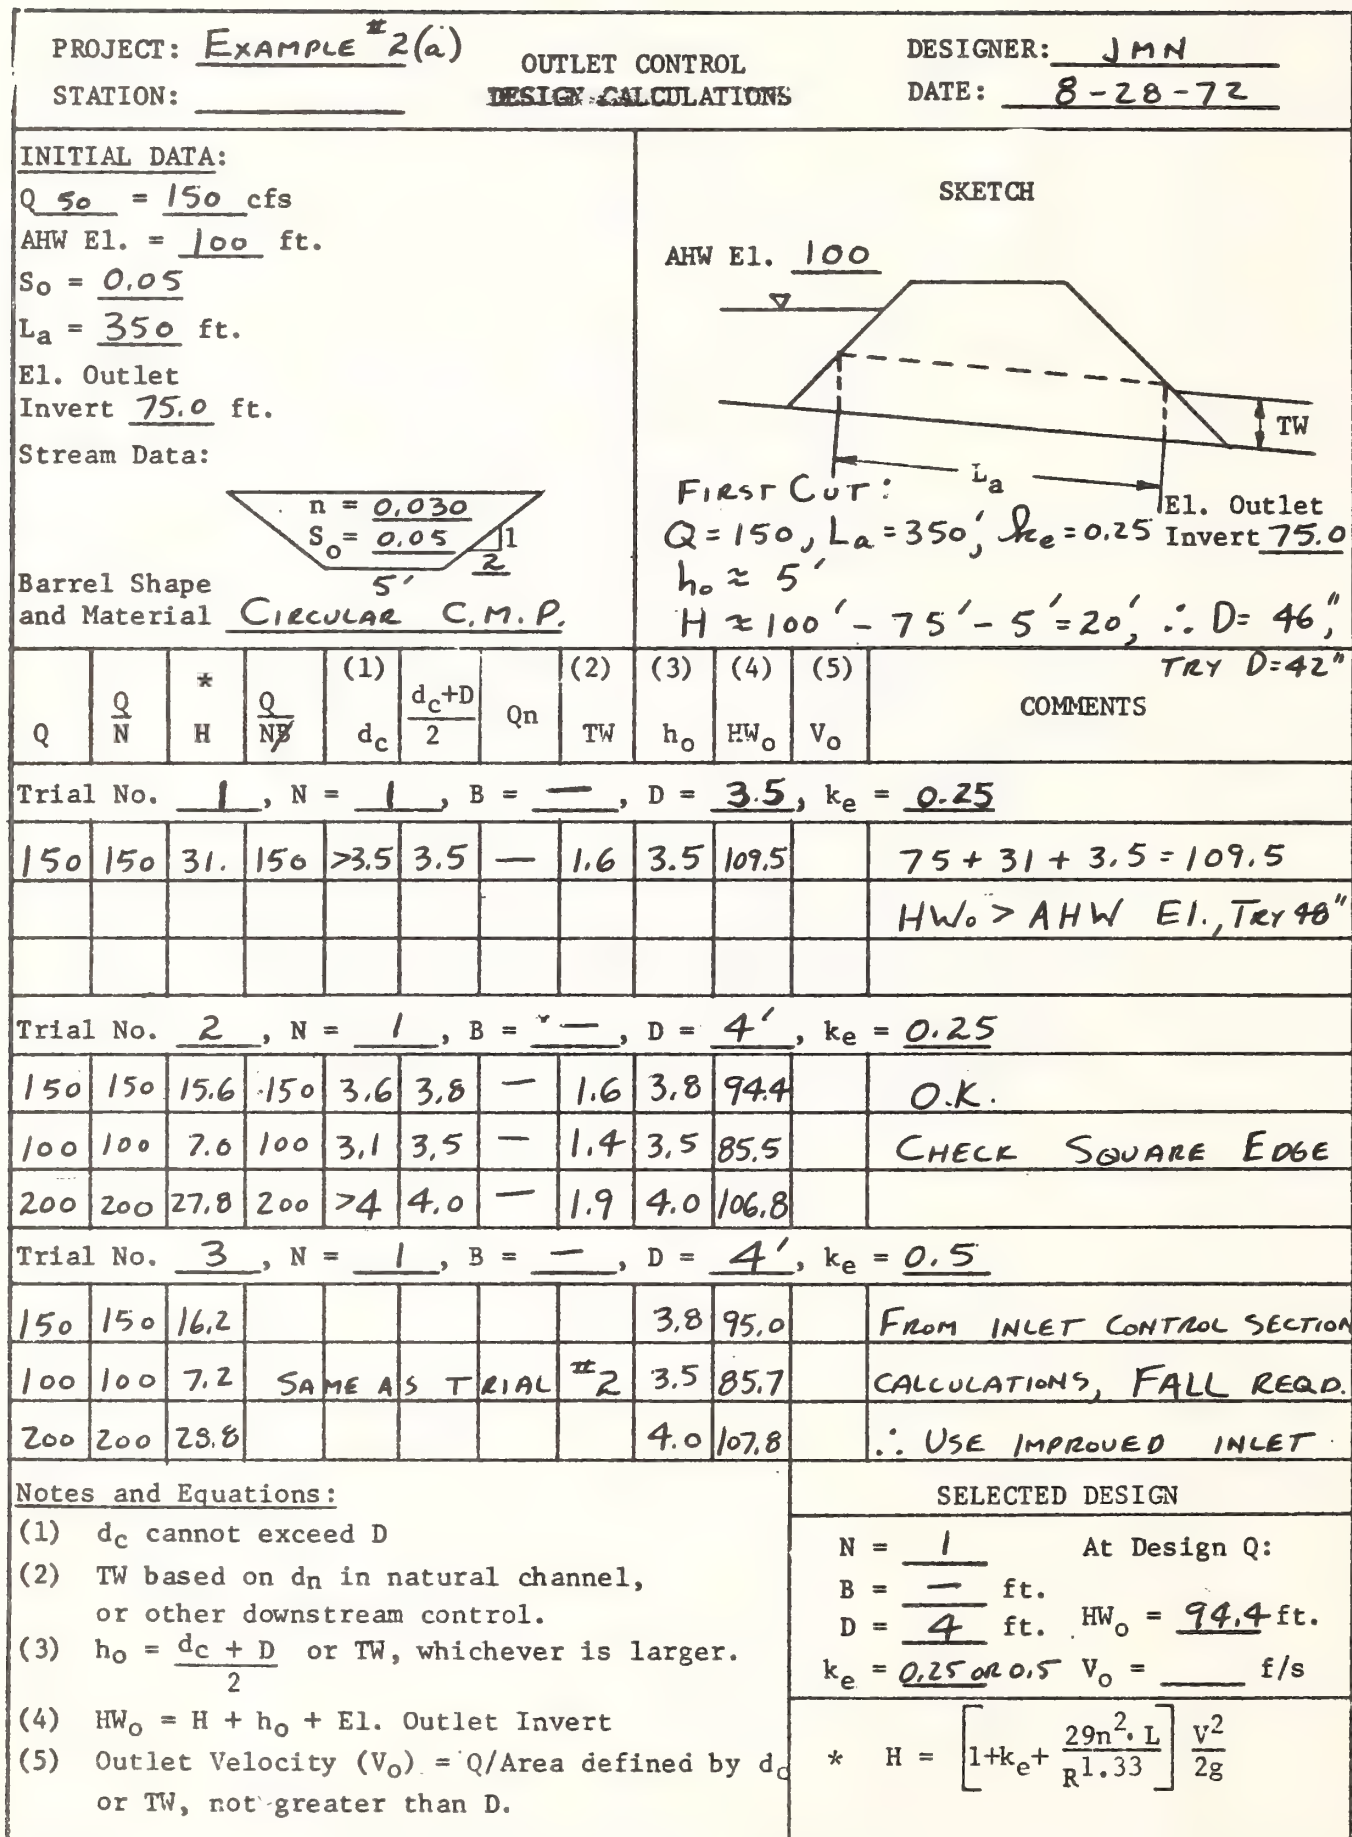 PROJECT: EXAMPLE #2(a)
STATION:
OUTLET CONTROL
DESIGN CALCULATIONS
DESIGNER: JMN
DATE: 8-28-72
INITIAL DATA:
Q 50 = 150 cfs
AHW El. = 100 ft.
So = 0.05
La = 350 ft.
El. Outlet
Invert 75.0 ft.
Stream Data:
n = 0.030
So = 0.05
1
2
5'
Barrel Shape
and Material CIRCULAR C.M.P.
SKETCH
AHW El. 100
TW
La
El. Outlet
Invert 75.0
FIRST CUT:
Q = 150, La = 350', ke = 0.25
ho ≈ 5'
H ≈ 100' - 75' - 5' = 20', ∴ D = 46",
TRY D=42"
Q | Q/N | * H | Q/NB | (1) dc | dc+D/2 | Qn | (2) TW | (3) ho | (4) HWo | (5) Vo | COMMENTS
Trial No. 1, N = 1, B = —, D = 3.5, ke = 0.25
150 | 150 | 31. | 150 | >3.5 | 3.5 | — | 1.6 | 3.5 | 109.5 | 75 + 31 + 3.5 = 109.5
HWo > AHW El., TRY 48"
Trial No. 2, N = 1, B = —, D = 4', ke = 0.25
150 | 150 | 15.6 | 150 | 3.6 | 3.8 | — | 1.6 | 3.8 | 94.4 | O.K.
100 | 100 | 7.0 | 100 | 3.1 | 3.5 | — | 1.4 | 3.5 | 85.5 | CHECK SQUARE EDGE
200 | 200 | 27.8 | 200 | >4 | 4.0 | — | 1.9 | 4.0 | 106.8
Trial No. 3, N = 1, B = —, D = 4', ke = 0.5
150 | 150 | 16.2 | 3.8 | 95.0 | FROM INLET CONTROL SECTION
100 | 100 | 7.2 | SAME AS TRIAL #2 | 3.5 | 85.7 | CALCULATIONS, FALL REQD.
200 | 200 | 28.8 | 4.0 | 107.8 | ∴ USE IMPROVED INLET
Notes and Equations:
(1) dc cannot exceed D
(2) TW based on dn in natural channel,
or other downstream control.
(3) ho = dc + D/2 or TW, whichever is larger.
(4) HWo = H + ho + El. Outlet Invert
(5) Outlet Velocity (Vo) = Q/Area defined by dc
or TW, not greater than D.
SELECTED DESIGN
N = 1 At Design Q:
B = — ft.
D = 4 ft. HWo = 94.4 ft.
ke = 0.25 OR 0.5 Vo = f/s
* H = [1+ke+ 29n². L/R1.33] V²/2g